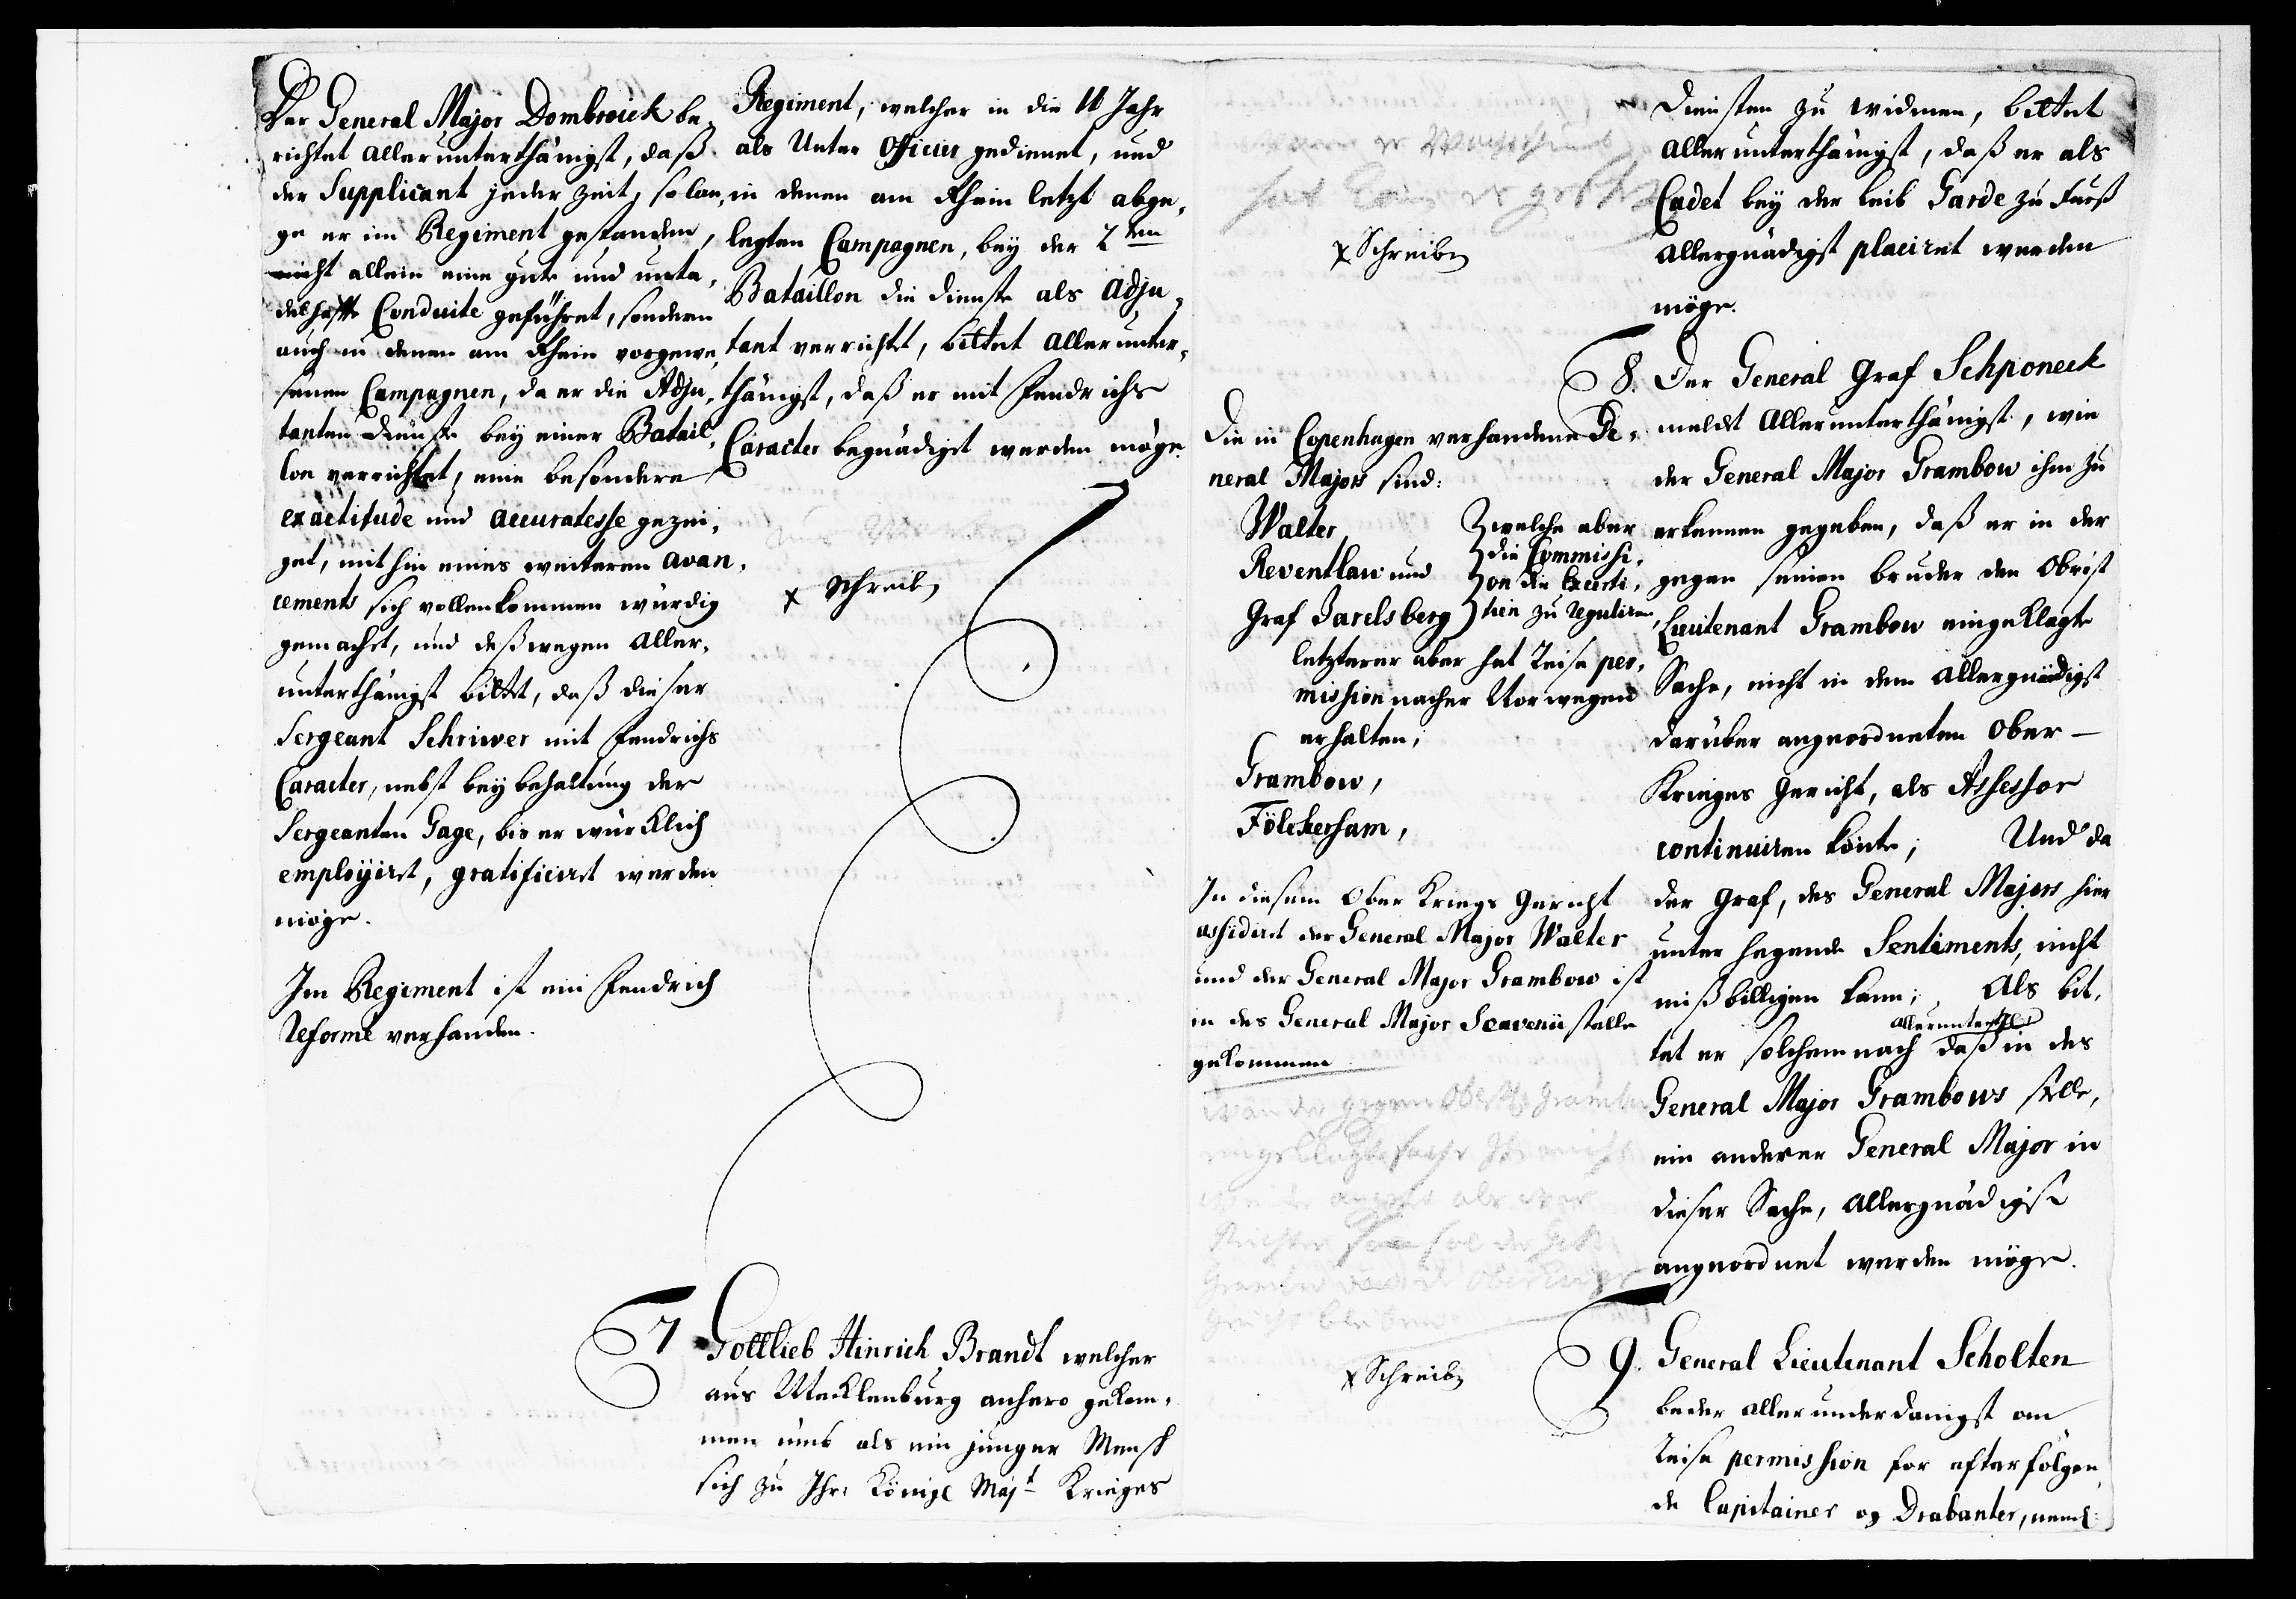 Der General Major Dombroick be¬
richtet allerunterthänigst, daß
der Supplicant jederzeit, solan¬
ge er im Regiment gestanden,
nicht allein eine gute und unta¬
delhaffte Conduite geführet, sondern
auch in denen am Rhein vorgewe¬
senen Campagnen, da er die Adju¬
tanten Dienste bey einer Batail¬
lon verrichtet, eine besondere
exactitude und accuratesse gezei¬
get, mithin eines weiteren avan¬
cements sich vollenkommen würdig
gemachet, und deßwegen aller¬
unterthänigst bittet, daß dieser
Sergeant Schriwer mit Fendrichs
Caracter, nebst beybehaltung der
Sergeanten Gage, bis er würcklich
employiret, gratificiret werden
möge.
Im Regiment ist ein Fendrich
Reformé verhanden.
Regiment, welcher in die 11 Jahr
als Unter Officier gedienet, und
in denen am Rhein letzt abge¬
legten Campagnen, bey der 2ten
Bataillon die dienste als Adju¬
tant verrichtet, bittet allerunter¬
thänigst, daß er mit Fendrichs
Caracter begnädiget werden möge.
x Schreiben
7 Gottlieb Hinrich Brandt welcher
aus Mecklenburg anhero gekom¬
men umb als ein junger Mensch
sich zu Ihr: Königl Majt Krieges
x Schreiben
Die in Copenhagen verhandene Ge¬
neral Majors sind:
Walter
Reventlau und
Graf Jarelsberg
welche aber
die Commissi¬
on die Exerci¬
tien zu reguliren,
letzterer aber hat Reise per¬
mission nacher Norwegen
erhalten;
Grambow,
Fölckersam,
In diesem Ober Kriegs Gericht
assidiret der General Major Walter
und der General Major Grambow ist
in des General Major Scavenii stelle
gekommen
x Schreiben
Diensten zu widmen, bittet
allerunterthänigst, daß er als
Cadet bey der Leib Garde zu Fuß
allergnädigst placiret werden
möge.
8. Der General Graf Schponeck
meldet allerunterthänigst, wie
der General Major Grambow ihm zu
erkennen gegeben, daß er in der
gegen seinen bruder den Obrist
Lieutenant Grambow eingeklagte
Sache, nicht in dem allergnädigst
darüber angeordneten Ober¬
Krieges Gericht, als Assessor
continuiren könte; Und da
der Graf, des General Majors hier
unter hegende Sentiments, nicht
mißbilligen kann; Als bit¬
allerunterth:
tet er solchemnach daß in des
General Major Grambows stelle,
ein anderer General Major in
dieser Sache, allergnädigst
angeordnet werden möge.
9. General Lieutenant Scholten
beder allerunderdanigst om
Reise permission for efterfölgen¬
de Capitainer og Drabanter, neml: